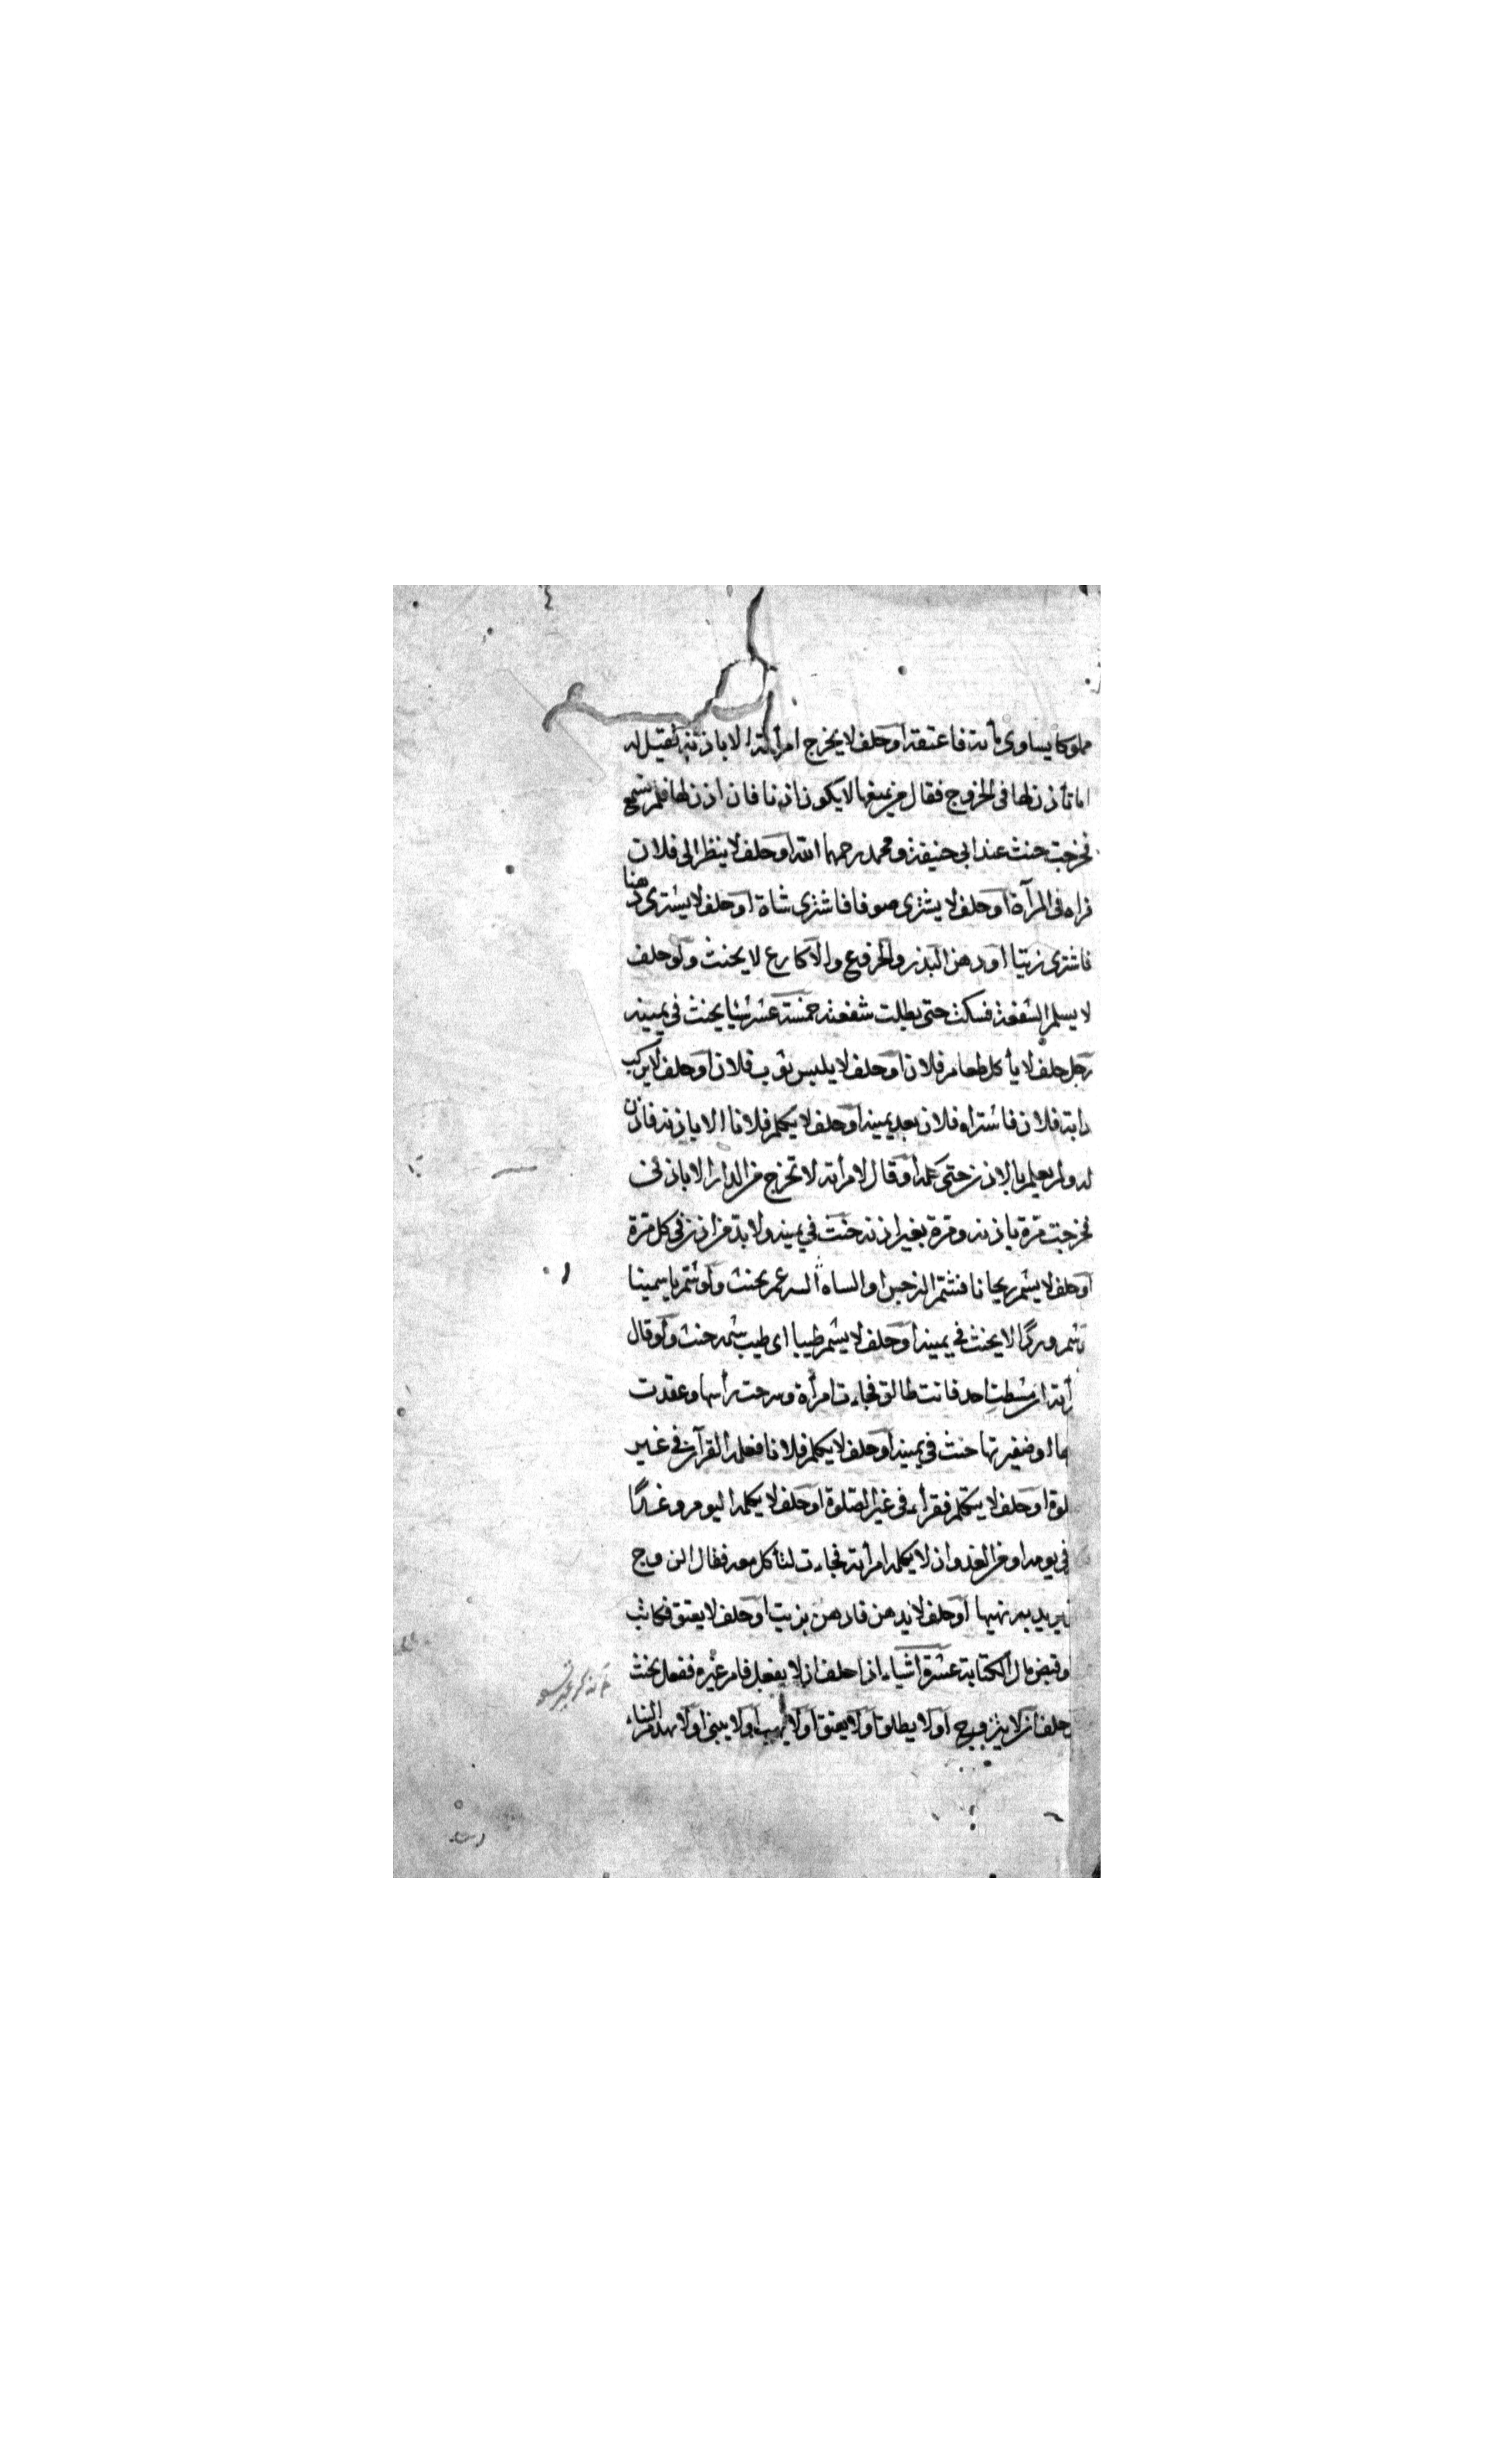 مملوكا يساوى مأته فاعتقه او حلف لا يخرج امرأته الا باذنه فقيل له
اما تأذن لها فى الخروج فقال من يمنعها لا يكون اذنا فان اذن لها فلم تسمع
فخرجت حنث عند ابى حنيفة ومحمد رحمهما الله او حلف لا ينظر الى فلان
فراه فى المرآة او حلف لا يشترى صوفا فاشترى شاة او حلف لا يشترى دهنا
فاشترى زيتا او دهن البذر والخروع والاكارع لا يحنث ولو حلف
لا يسلم الشفعة فسكت حتى بطلت شفعته خمسة عشر شيئا يحنث فى يمينه
رجل حلف لا يأكل طعام فلان او حلف لا يلبس ثوب فلان او حلف لا يركب
دابة فلان فاشتراه فلان بعد يمينه او حلف لا يكلم فلانا الا باذنه فاذن
له ولم يعلم بالاذن حتى كلمه او قال لامرأته لا تخرج من الدار الا باذنى
فخرجت مرة باذنه ومرة بغير اذنه حنث فى يمينه ولا بد من اذن فى كل مرة
او حلف لا يشم ريحانا فشم النرجس او يحنث ولو شم ياسمينا
شم وردا لا يحنث فى يمينه او حلف لا يشم طيبا اى طيب شمه حنث ولو قال
رأته ان مشطت احد فانت طالق فجاءت امرأة وسرحت رأسها وعقدت
ها او ضفيرتها حنث فى يمينه او حلف لا يكلم فلانا فعلمه القرآن فى غير
لوة او حلف لا يتكلم فقرأ فى غير الصلوة او حلف لا يكلمه اليوم وغدا
فى يومه او من الغد وان لا يكلمه امرأته فجاءت لتأكل معه فقال الزوج
يريد به نهيها او حلف لا يدهن فادهن بزيت او حلف لا يعتق فكاتب
وقبض مال الكتابة عشرة اشياء اذا حلف ان لا يفعل فامر غيره ففعل يحنث
حلف ان لا يتزوج او لا يطلق او لا يعتق او لا يهب او لا يبنى او لا يهدم البناء